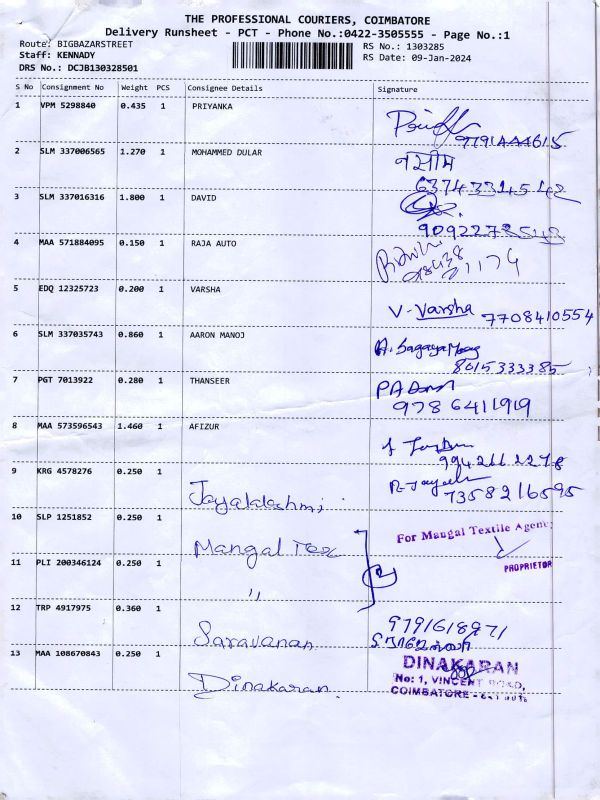 THE PROFESSIONAL COURIERS, COIMBATORE
Delivery Runsheet - PCT - Phone No.:0422-3505555 - Page No.:1
Route: BIGBAZARSTREET
RS No.: 1303285
Staff: KENNADY
RS Date: 09-Jan-2024
DRS No.: DCJB130328501
S No Consignment No Weight PCS Consignee Details Signature
1 VPM 5298840 0.435 1 PRIYANKA
2 SLM 337006565 1.270 1 MOHAMMED DULAR
नसीम
3 SLM 337016316 1.800 1 DAVID
4 MAA 571884095 0.150 1 RAJA AUTO
5 EDQ 12325723 0.200 1 VARSHA
V. Varsha 7708410554
6 SLM 337035743 0.860 1 AARON MANOJ
8015333385
7 PGT 7013922 0.280 1 THANSEER
9786411919
8 MAA 573596543 1.460 1 AFIZUR
9942112278
9 KRG 4578276 0.250 1 Jayalalashmi
7358216595
10 SLP 1251852 0.250 1 Mangal Tex
For Mangal Textile Agency
PROPRIETOR
11 PLI 200346124 0.250 1 "
12 TRP 4917975 0.360 1 Saravanan
9791618971
13 MAA 108670843 0.250 1 Dinakaran
DINAKARAN
No: 1, VINCENT ROAD,
COIMBATORE -